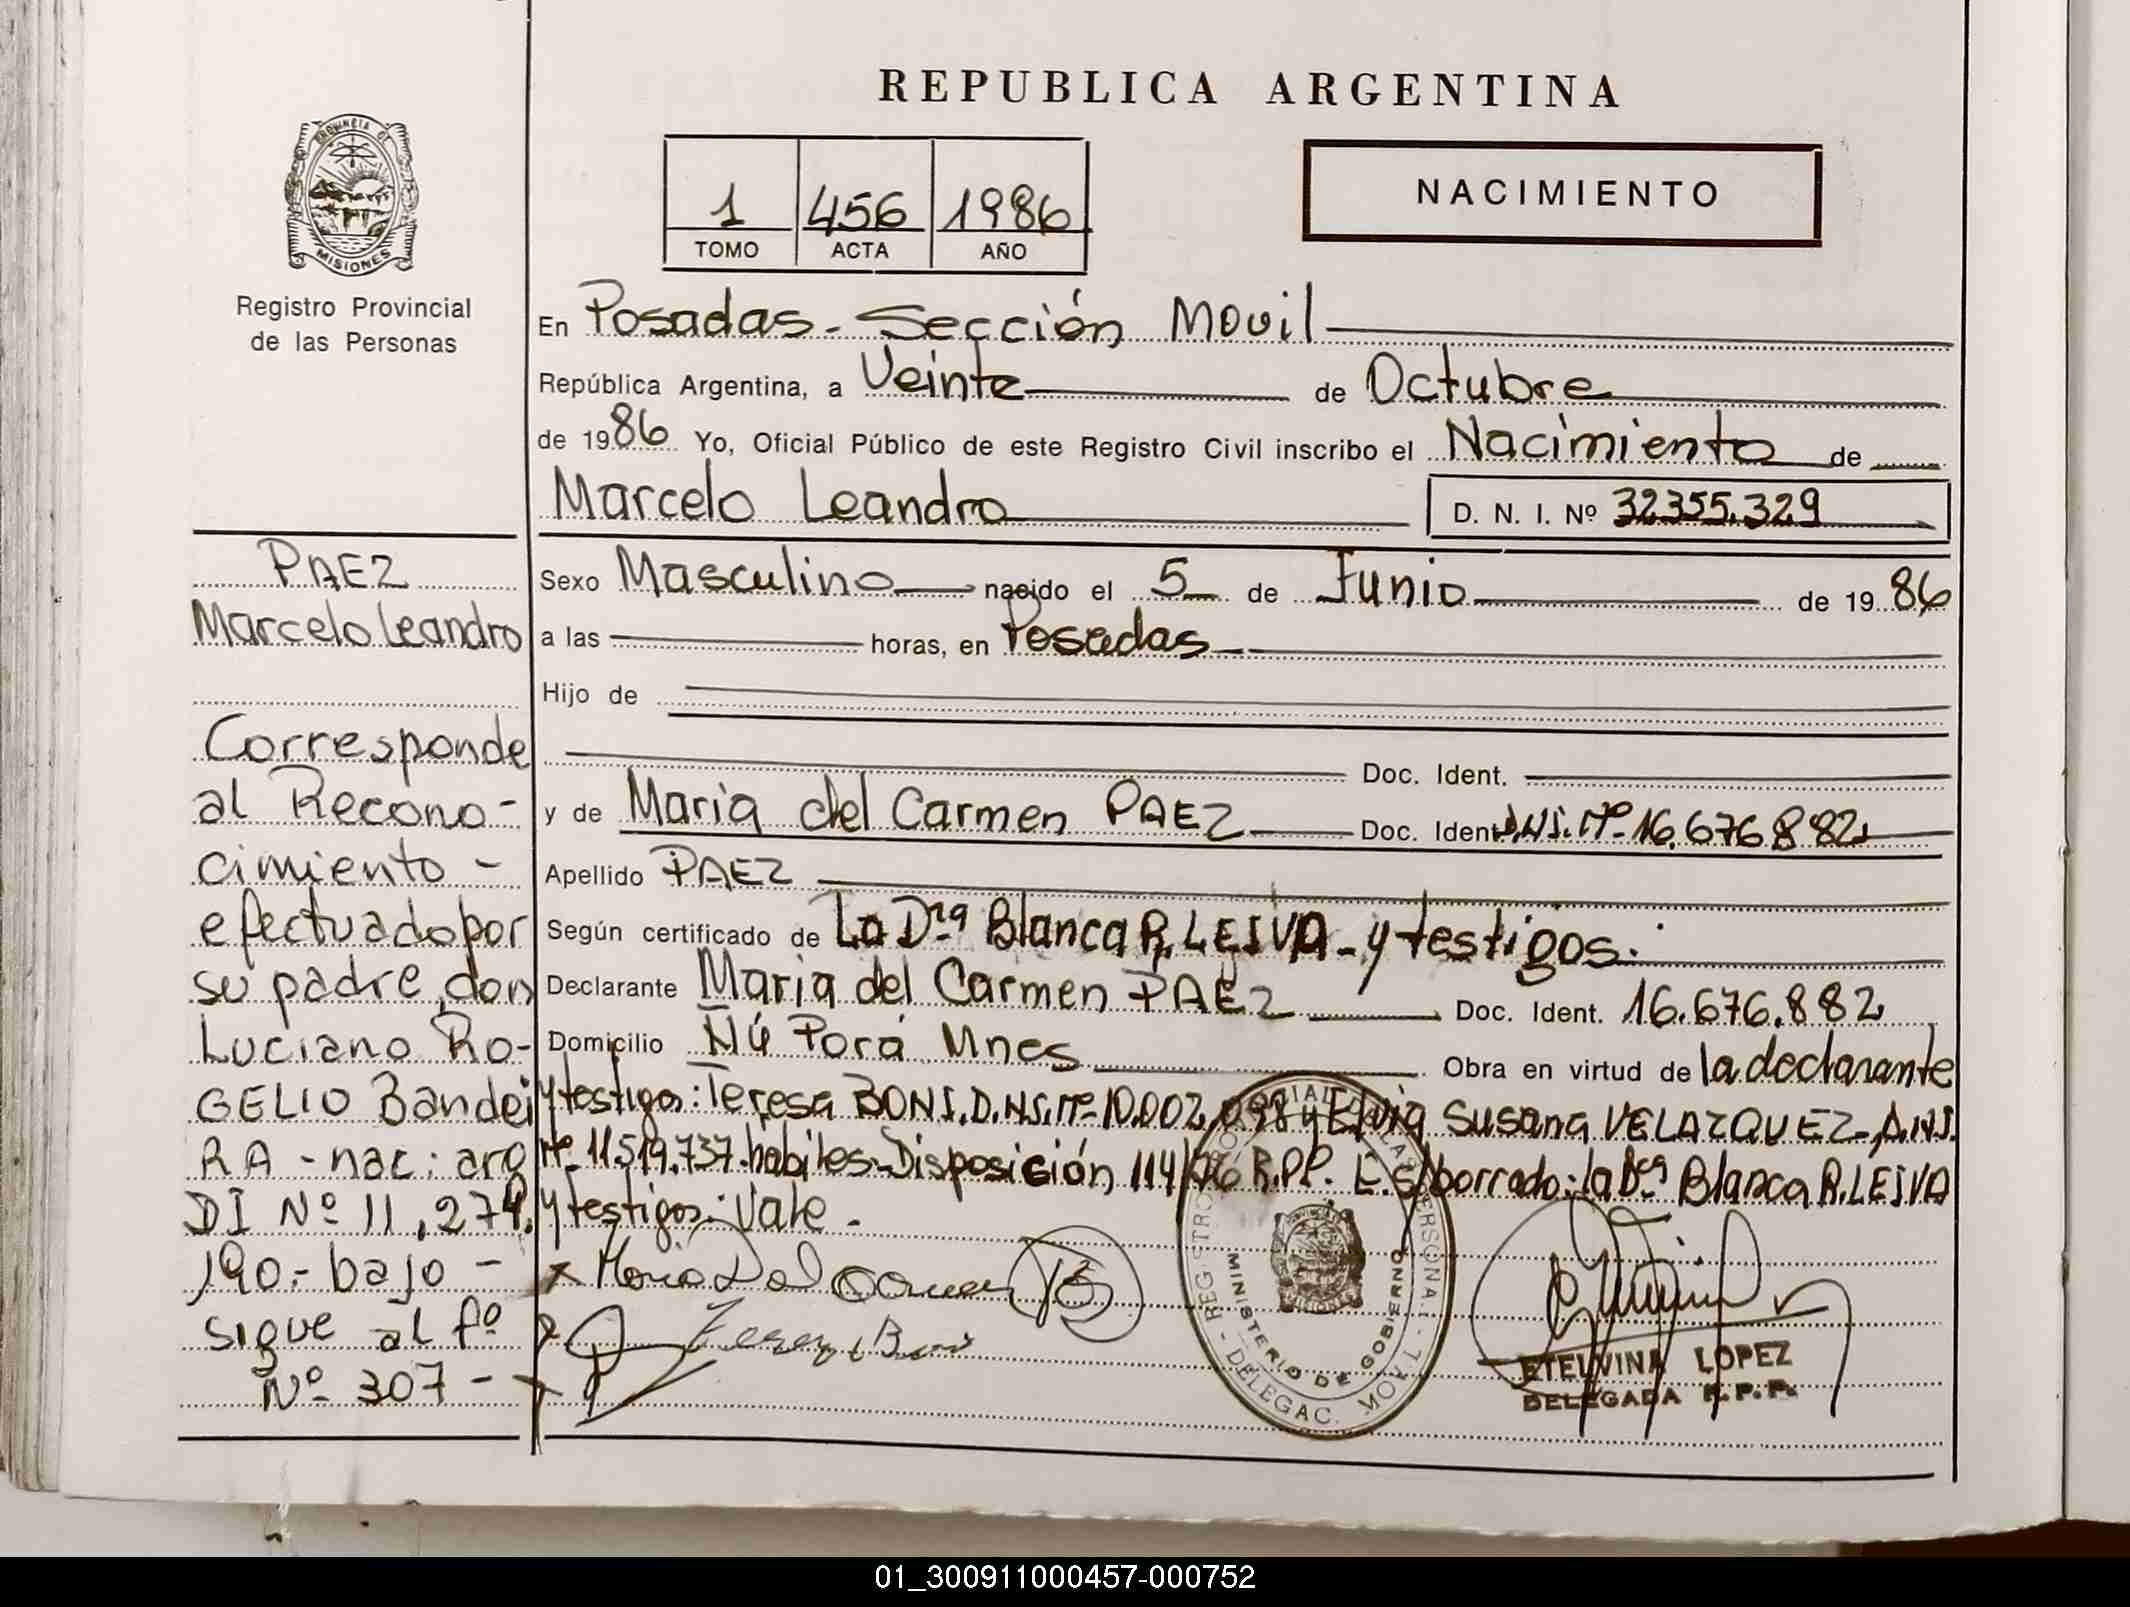 REPUBLICA ARGENTINA
PROVINCIA DE
MISIONES
Registro Provincial
de las Personas
1 456 1986
TOMO ACTA AÑO
NACIMIENTO
En Posadas - Sección Movil
República Argentina, a Veinte de Octubre
de 1986 Yo, Oficial Público de este Registro Civil inscribo el Nacimiento de
Marcelo Leandro D. N. I. Nº 32355.329
Sexo Masculino nacido el 5 de Junio de 1986
a las horas, en Posadas
Hijo de
Doc. Ident.
y de Maria del Carmen PAEZ Doc. Ident. D.N.I. Nº 16.676.882
Apellido PAEZ
Según certificado de La Dra Blanca R. LEIVA - y testigos.
Declarante Maria del Carmen PAEZ Doc. Ident. 16.676.882
Domicilio Ñú Porá Mnes Obra en virtud de la declarante
y testigos: Teresa BONI. D.N.I. Nº 10.002.098 y Elvia Susana VELAZQUEZ, D.N.I.
Nº 11.519.737. habiles. Disposición 114/76 R.P.P. E.S/borrado: la Dra Blanca R. LEIVA
y testigos: Vale.
PAEZ
Marcelo Leandro
Corresponde
al Recono-
cimiento -
efectuado por
su padre, don
Luciano Ro-
GELIO Bandei
RA - nac: arg
DI Nº 11,274.
190.- bajo -
sigue al fº
Nº 307 -
x Maria Del Carmen
REGISTRO PROVINCIAL DE LAS PERSONAS
MINISTERIO DE GOBIERNO
DELEGAC. MOVIL
ETELVINA LOPEZ
DELEGADA R.P.P.
01_300911000457-000752